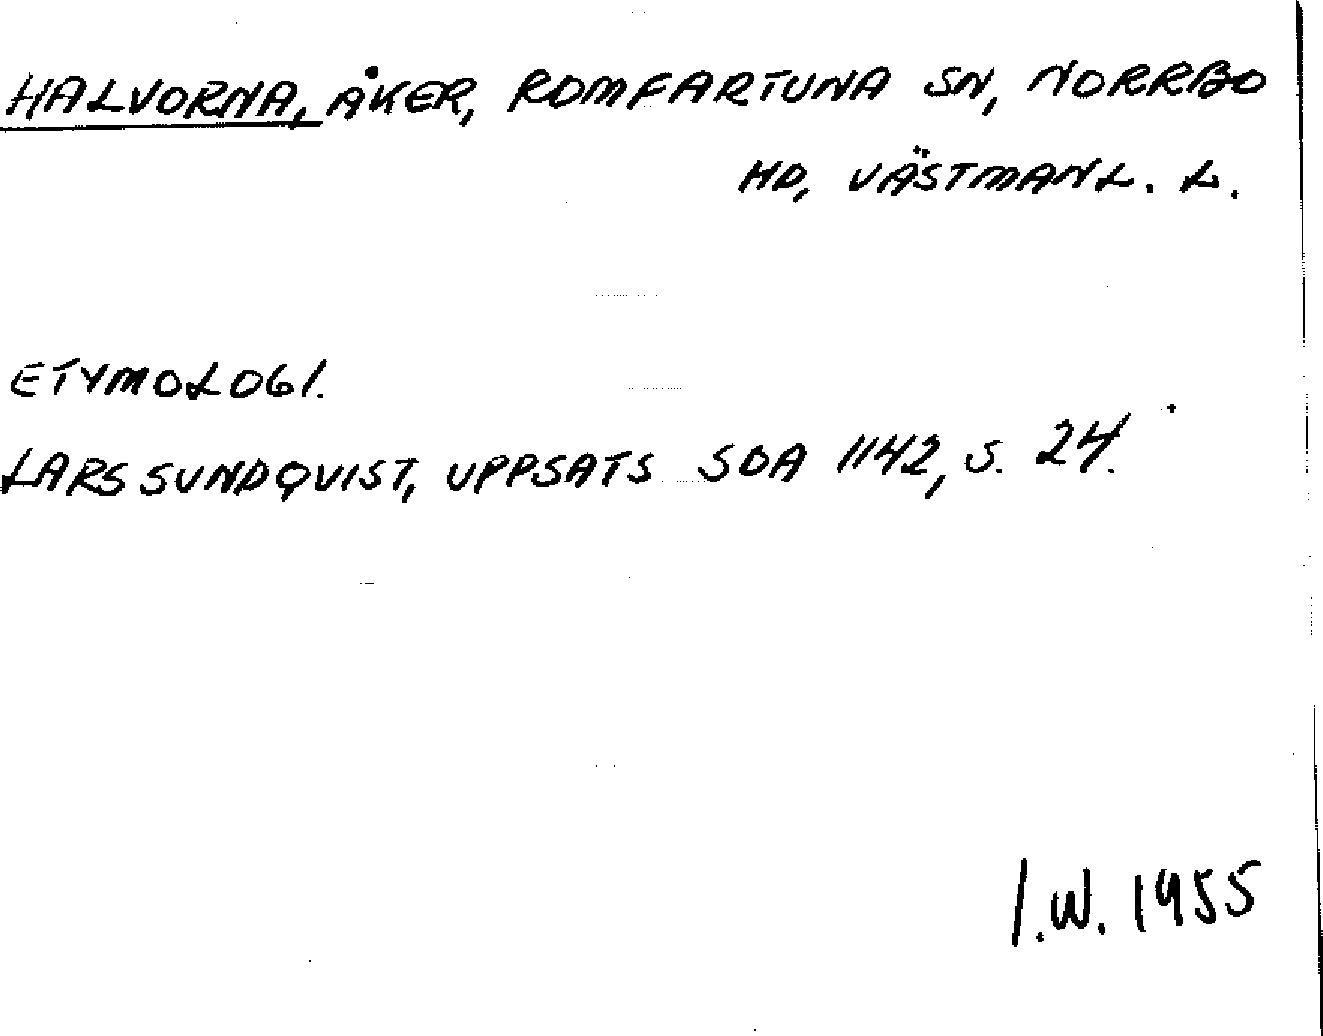 HALVORNA, ÅKER, ROMFARTUNA SN, NORRBO
HD, VÄSTMANL. L.
ETYMOLOGI.
LARS SUNDQVIST, UPPSATS SOA 1142, S. 24.
I.W. 1955